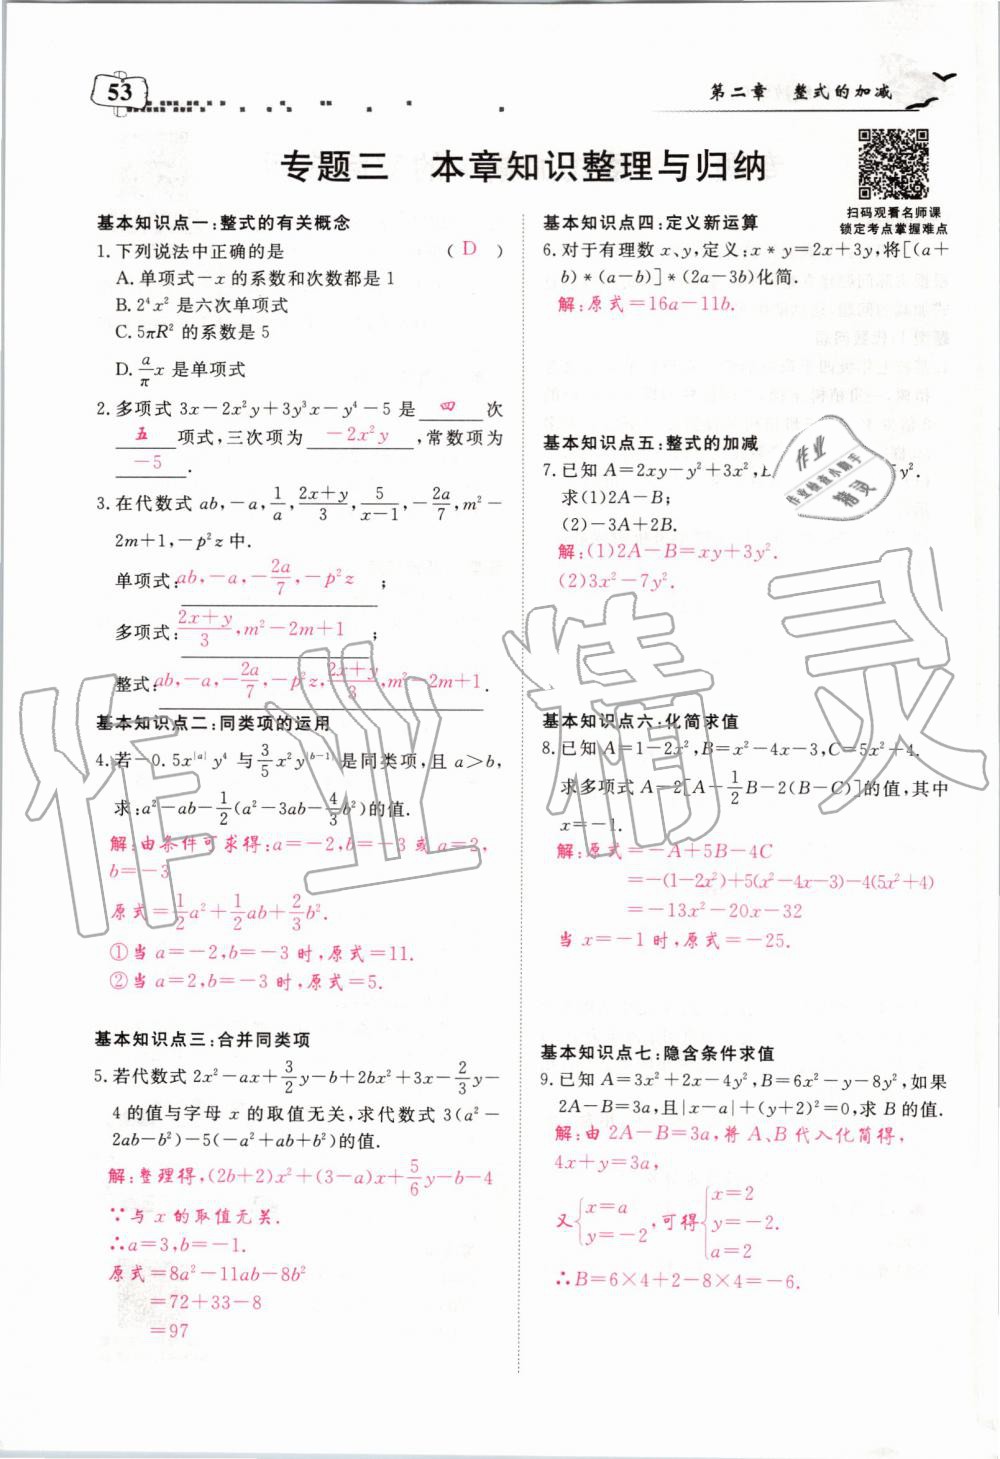 53
第二章　整式的加减
专题三　本章知识整理与归纳
扫码观看名师课
锁定考点掌握难点
基本知识点一:整式的有关概念
1.下列说法中正确的是 ( D )
A.单项式-x的系数和次数都是1
B.2⁴x²是六次单项式
C.5πR²的系数是5
D.a/π x是单项式
2.多项式3x-2x²y+3y³x-y⁴-5是 四 次
五 项式,三次项为 -2x²y ,常数项为
-5 .
3.在代数式ab,-a,1/a,(2x+y)/3,5/(x-1),-2a/7,m²-
2m+1,-p²z中.
单项式:ab,-a,-2a/7,-p²z ;
多项式:(2x+y)/3,m²-2m+1 ;
整式:ab,-a,-2a/7,-p²z,(2x+y)/3,m²-2m+1 .
基本知识点二:同类项的运用
4.若-0.5x|a|y⁴与3/5x²y|b-1|是同类项,且a>b,
求:a²-ab-1/2(a²-3ab-4/3b²)的值.
解:由条件可求得:a=-2,b=-3或a=2,
b=-3
原式=1/2a²+1/2ab+2/3b².
①当a=-2,b=-3时,原式=11.
②当a=2,b=-3时,原式=5.
基本知识点三:合并同类项
5.若代数式2x²-ax+3/2y-b+2bx²+3x-2/3y-
4的值与字母x的取值无关,求代数式3(a²-
2ab-b²)-5(-a²+ab+b²)的值.
解:整理得,(2b+2)x²+(3-a)x+5/6y-b-4
∵与x的取值无关.
∴a=3,b=-1.
原式=8a²-11ab-8b²
=72+33-8
=97
基本知识点四:定义新运算
6.对于有理数x、y,定义:x*y=2x+3y,将[(a+
b)*(a-b)]*(2a-3b)化简.
解:原式=16a-11b.
基本知识点五:整式的加减
7.已知A=2xy-y²+3x², y².
求(1)2A-B;
(2)-3A+2B.
解:(1)2A-B=xy+3y².
(2)3x²-7y².
基本知识点六:化简求值
8.已知A=1-2x²,B=x²-4x-3,C=5x²+4.
求多项式A-2[A-1/2B-2(B-C)]的值,其中
x=-1.
解:原式=-A+5B-4C
=-(1-2x²)+5(x²-4x-3)-4(5x²+4)
=-13x²-20x-32
当x=-1时,原式=-25.
基本知识点七:隐含条件求值
9.已知A=3x²+2x-4y²,B=6x²-y-8y²,如果
2A-B=3a,且|x-a|+(y+2)²=0,求B的值.
解:由2A-B=3a,将A、B代入化简得,
4x+y=3a,
又{x=a y=-2,可得{x=2 y=-2. a=2
∴B=6×4+2-8×4=-6.
作业精灵
作业
作业检查小助手
精灵